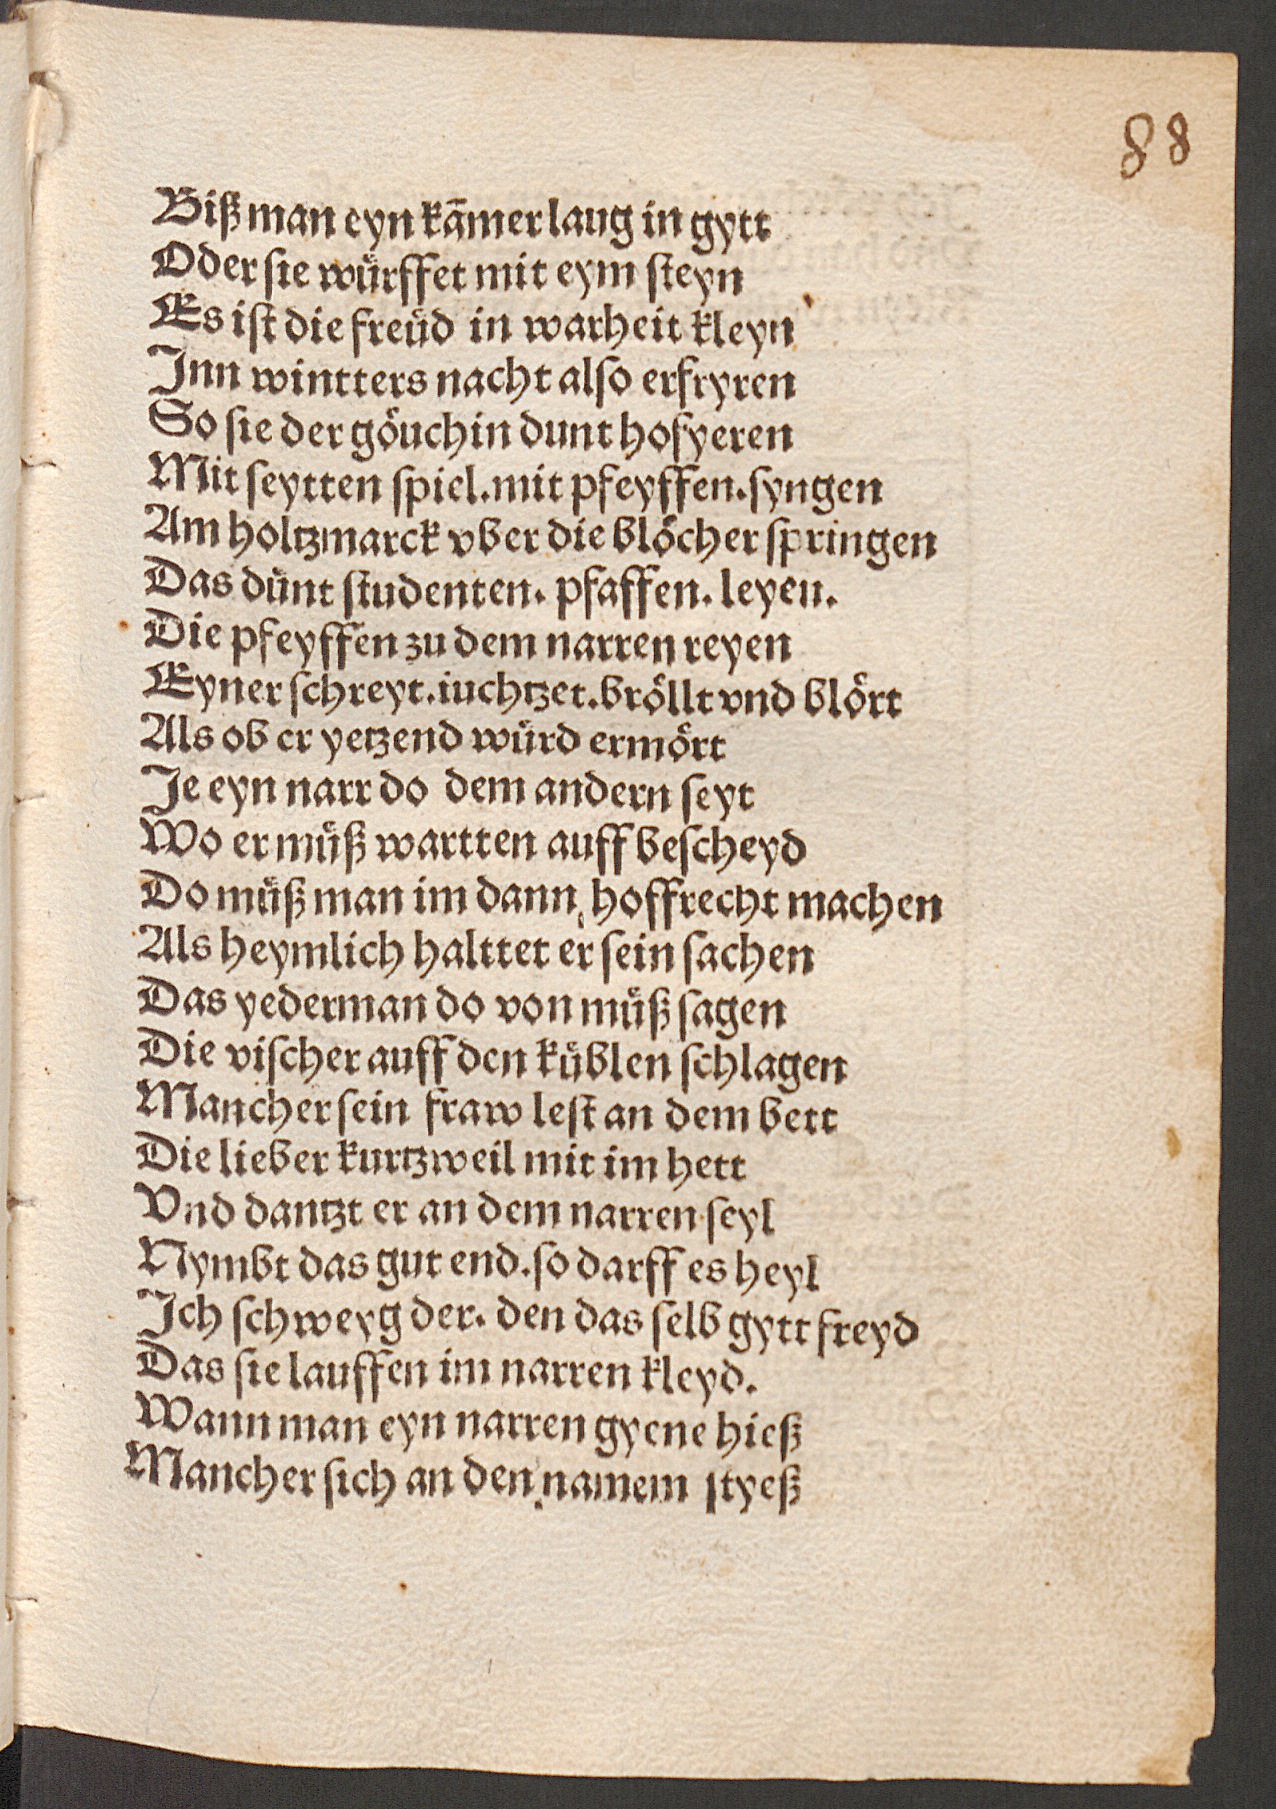 88
Biſz man eyn kām̄er laug in gytt
Oder sie würffet mit eym ſteyn
Es iſt die freüd in warheit kleyn
Jnn wintters nacht alſo erfryren
So ſie der göuchin dunt hofyeren
Mit ſeytten ſpiel.mit pfeyffen.ſyngen
Am holtzmarck vber die blöcher ſpringen
Das dünt ſtudenten. pfaffen. leyen.
Die pfeyffen zu dem narren reyen
Eyner ſchreyt.iuchtzet.bröllt vnd blört
Als ob er yetzend würd ermört
Je eyn narr do dem andern ſeyt
Wo er müſz wartten auff beſcheyd
Do müſz man im dann hoffrecht machen
Als heymlich halttet er ſein ſachen
Das yederman do von müſz ſagen
Die viſcher auff den küblen ſchlagen
Mancher ſein fraw leſt an dem bett
Die lieber kurtzweil mit im hett
Vnd dantzt er an dem narren ſeyl
Nymbt das gut end.ſo darff es heyl
Jch ſchweyg der. den das ſelb gytt freyd
Das ſie lauffen im narren kleyd.
Wann man eyn narren gyene hieſz
Mancher ſich an den namem ſtyeſz